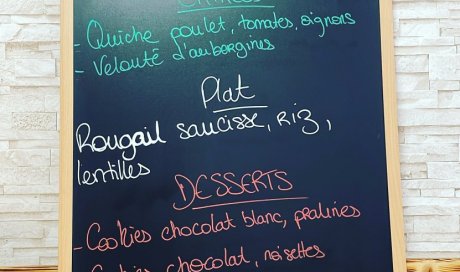 - Quiche poulet, tomates, oignons
- Velouté d'aubergines
Plat
Rougail saucisse, Riz,
lentilles
DESSERTS
- Cookies chocolat blanc, pralines
- Cookies chocolat, noisettes